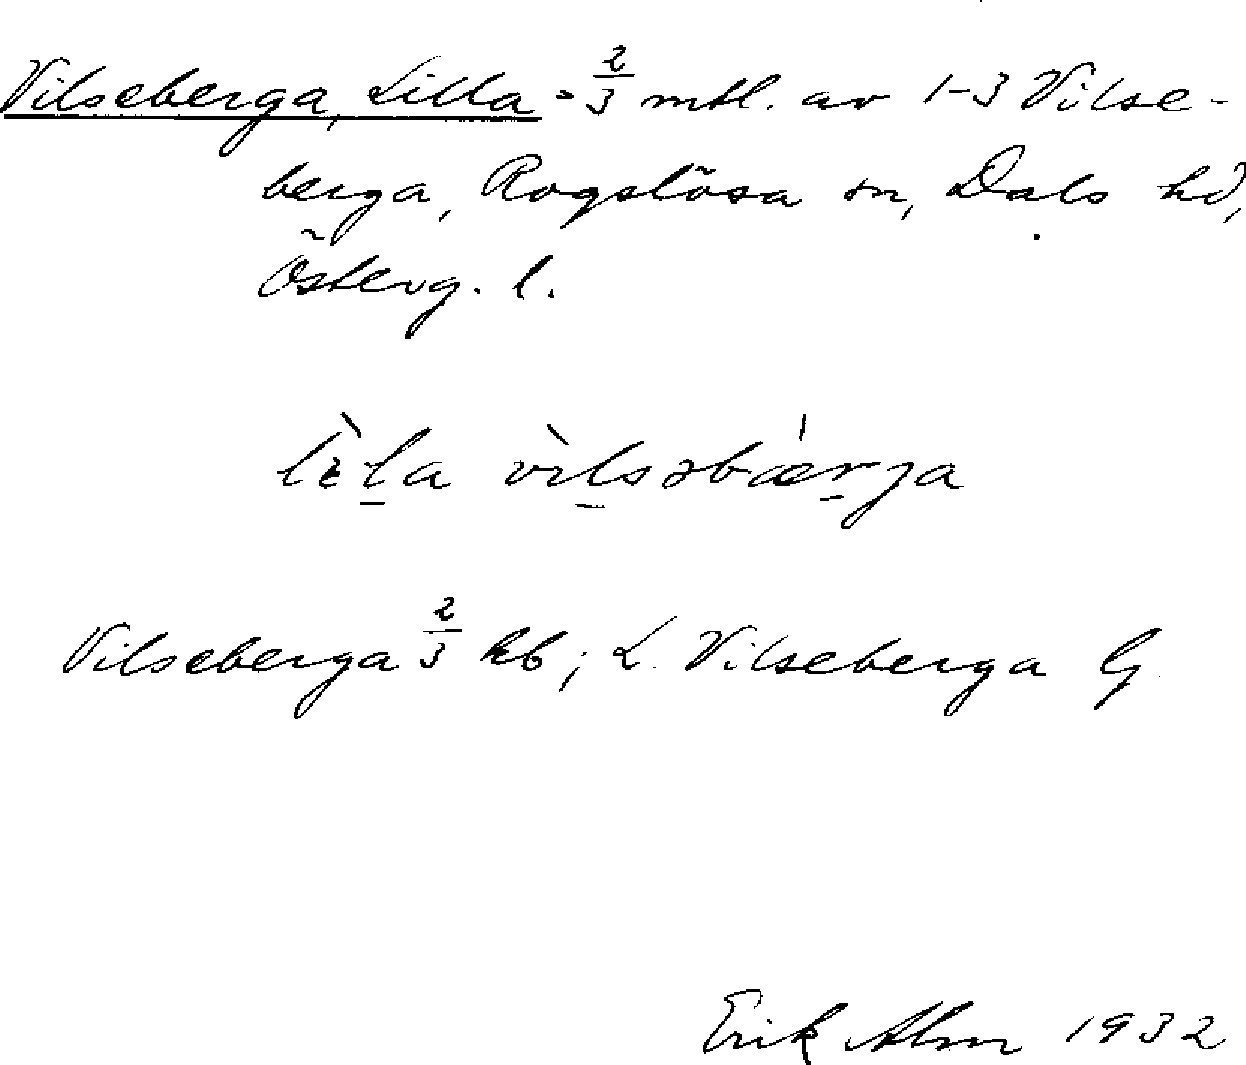 Vilseberga, Lilla = 2/3 mtl. av 1-3 Vilse-
berga, Rogslösa sn, Dals hd,
Österg. l.
lìla vìlsəbǽrja
Vilseberga 2/3 kb; L. Vilseberga G
Erik Alm 1932